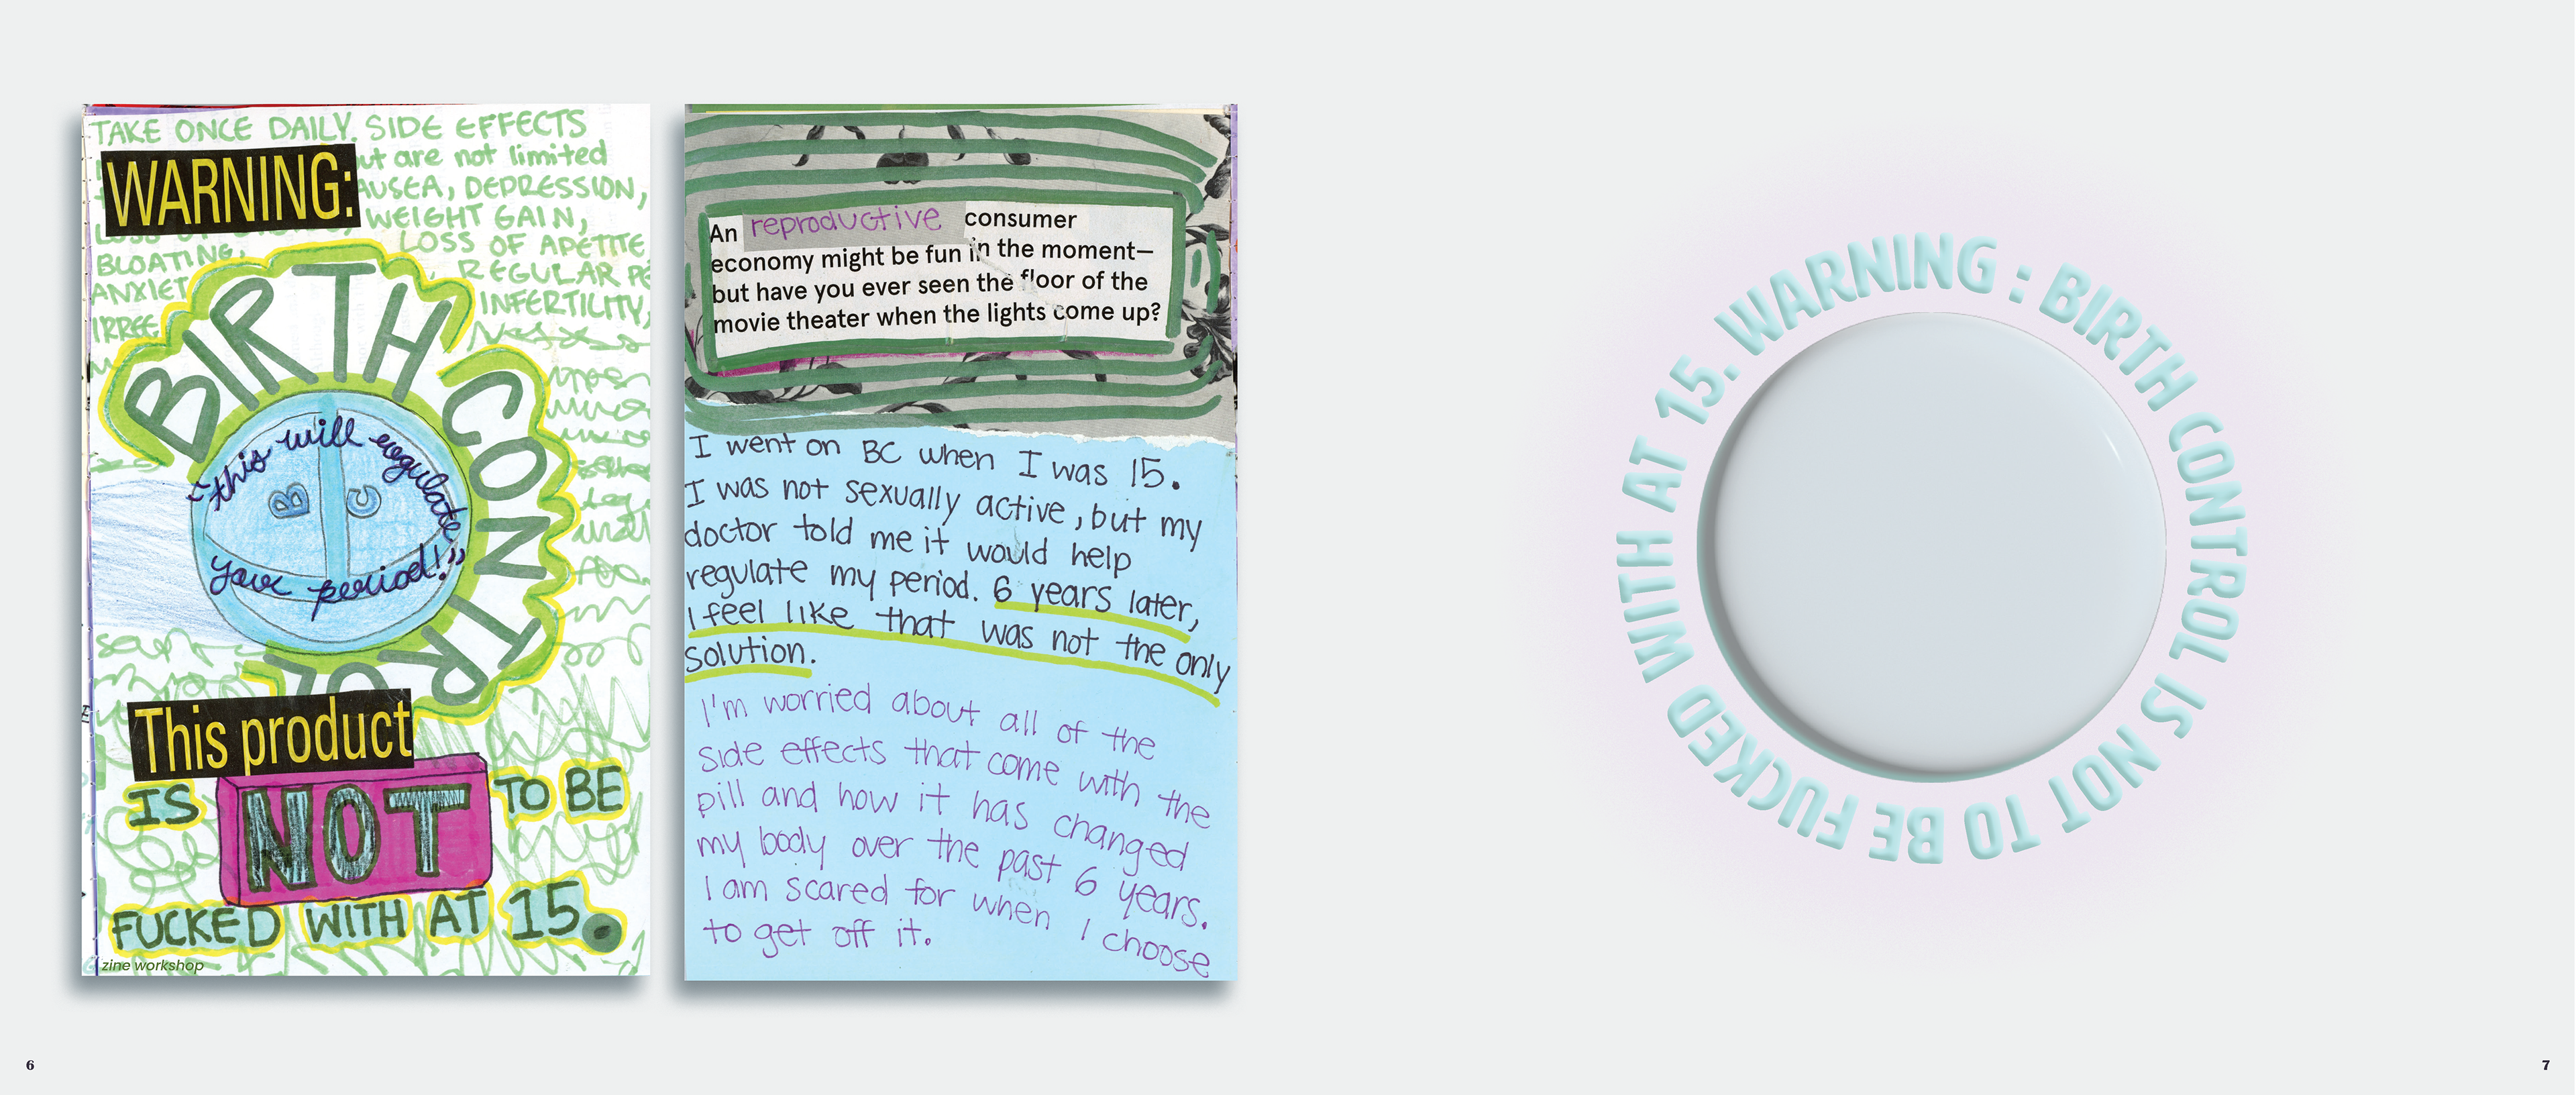 TAKE ONCE DAILY. SIDE EFFECTS
but are not limited
WARNING:
NAUSEA, DEPRESSION,
WEIGHT GAIN,
LOSS OF APETITE
BLOATING,
REGULAR PE
ANXIET
INFERTILITY,
IRREG
BIRTH CONTROL
"this will regulate
B C
your period!"
This product
IS NOT TO BE
FUCKED WITH AT 15.
zine workshop
An reproductive consumer
economy might be fun in the moment—
but have you ever seen the floor of the
movie theater when the lights come up?
I went on BC when I was 15.
I was not sexually active, but my
doctor told me it would help
regulate my period. 6 years later,
I feel like that was not the only
solution.
I'm worried about all of the
side effects that come with the
pill and how it has changed
my body over the past 6 years.
I am scared for when I choose
to get off it.
WARNING : BIRTH CONTROL IS NOT TO BE FUCKED WITH AT 15.
6
7